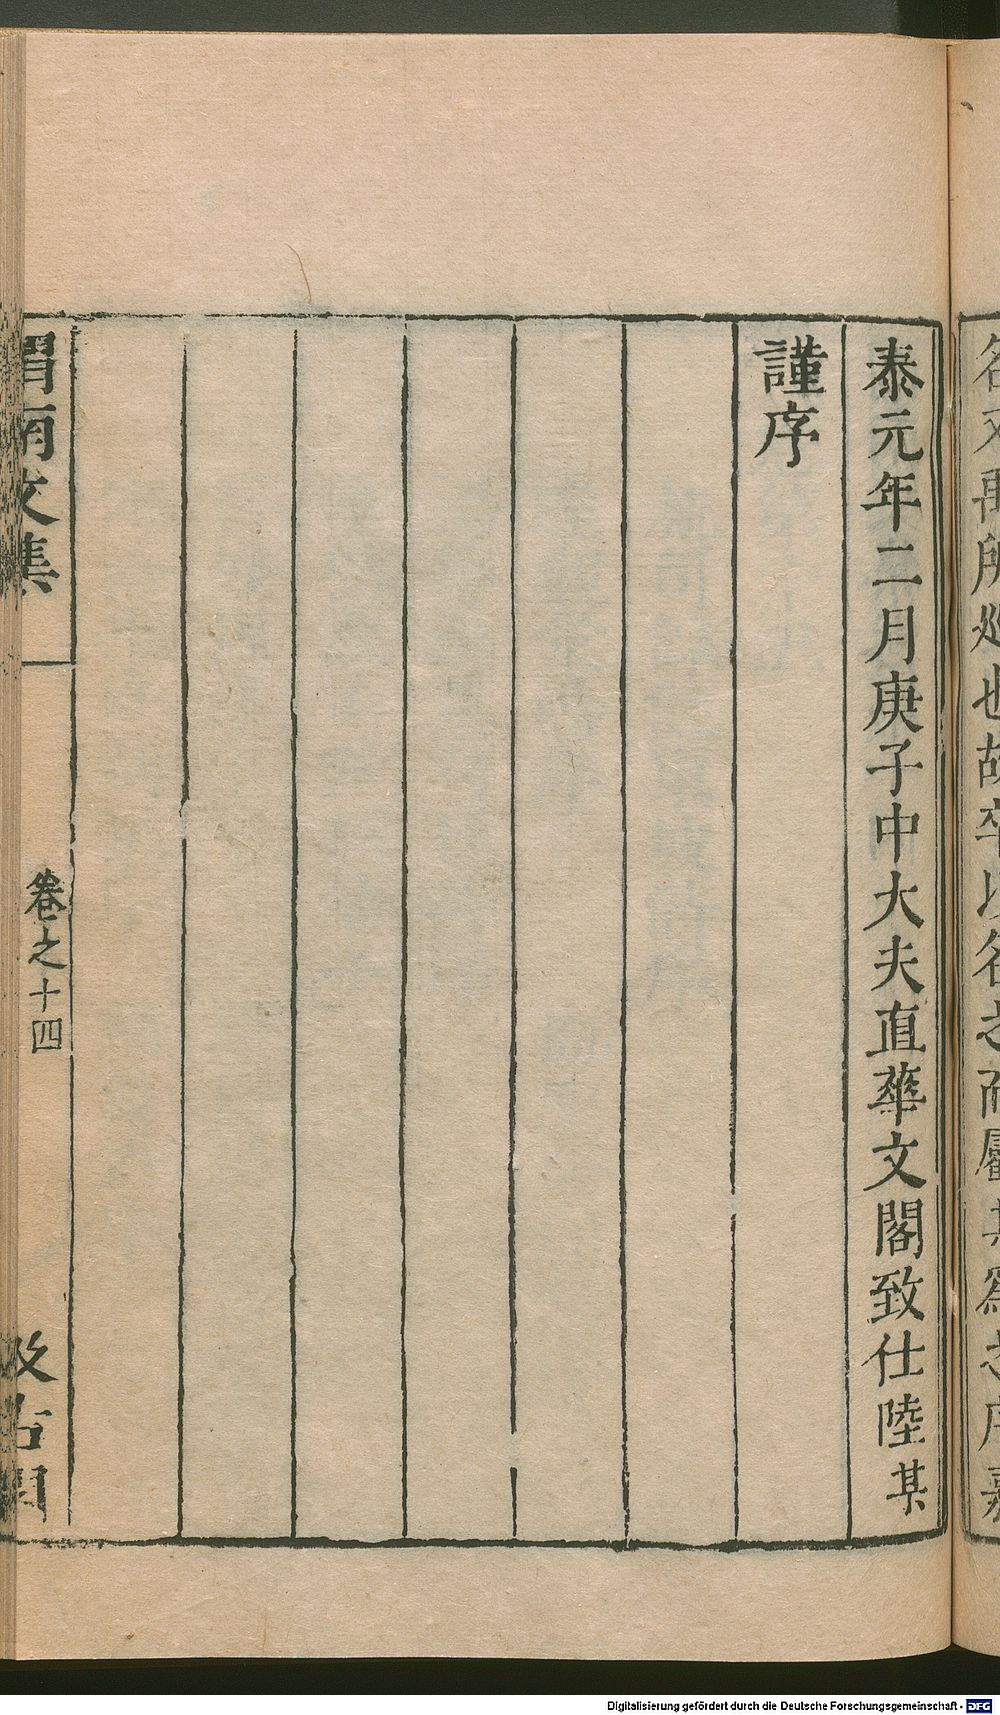 名又禹所巡也故卒以名之而屬某爲之序嘉
泰元年二月庚子中大夫直華文閣致仕陸某
謹序
渭南文集
卷之十四
汲古閣
Digitalisierung gefördert durch die Deutsche Forschungsgemeinschaft - DFG